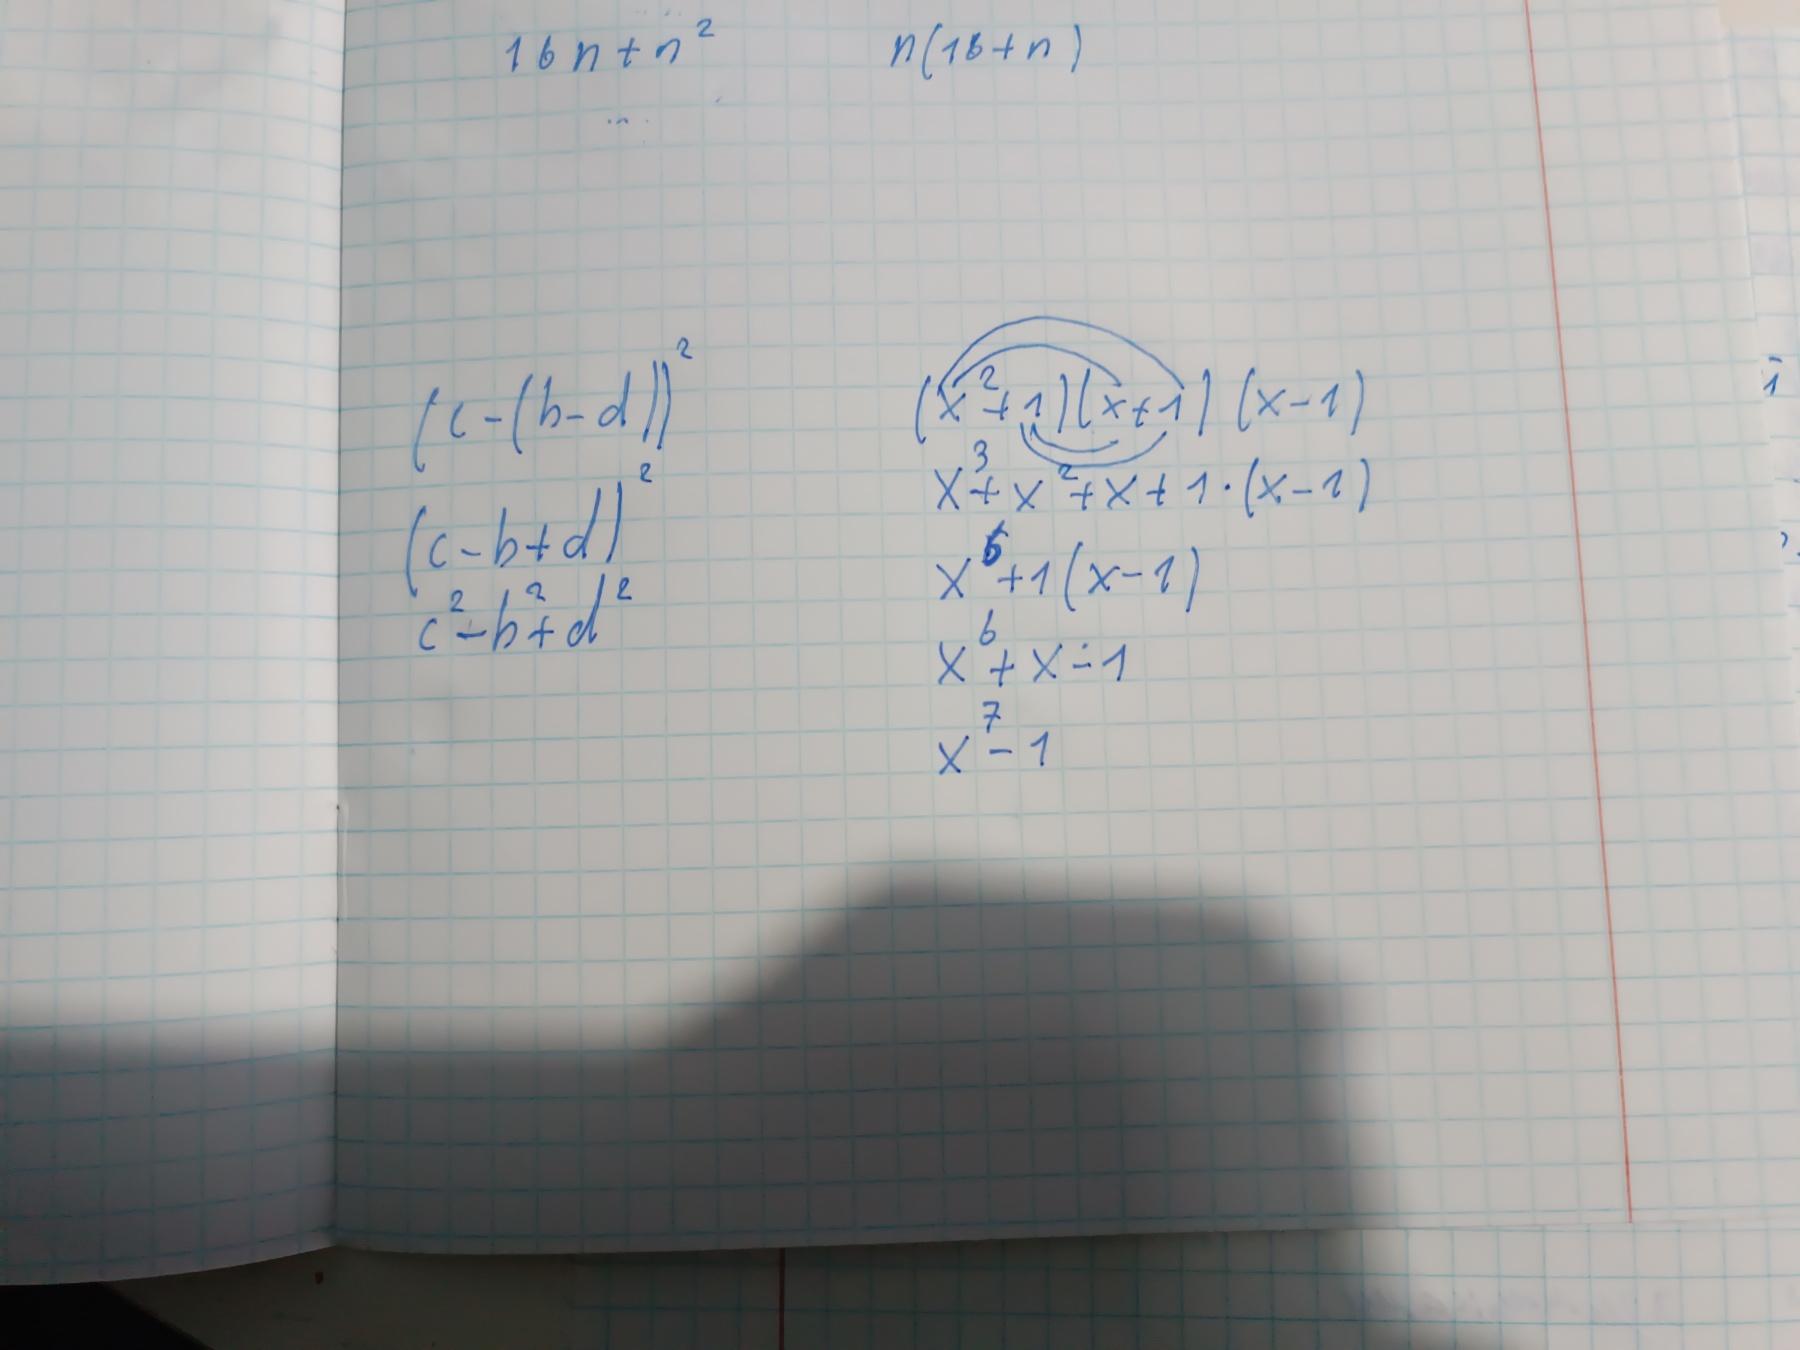 16n+n² n(16+n)
(c-(b-d))²
(c-b+d)²
c²-b²+d²
(x²+1)(x+1)(x-1)
x³+x²+x+1·(x-1)
x⁶+1(x-1)
x⁶+x-1
x⁷-1